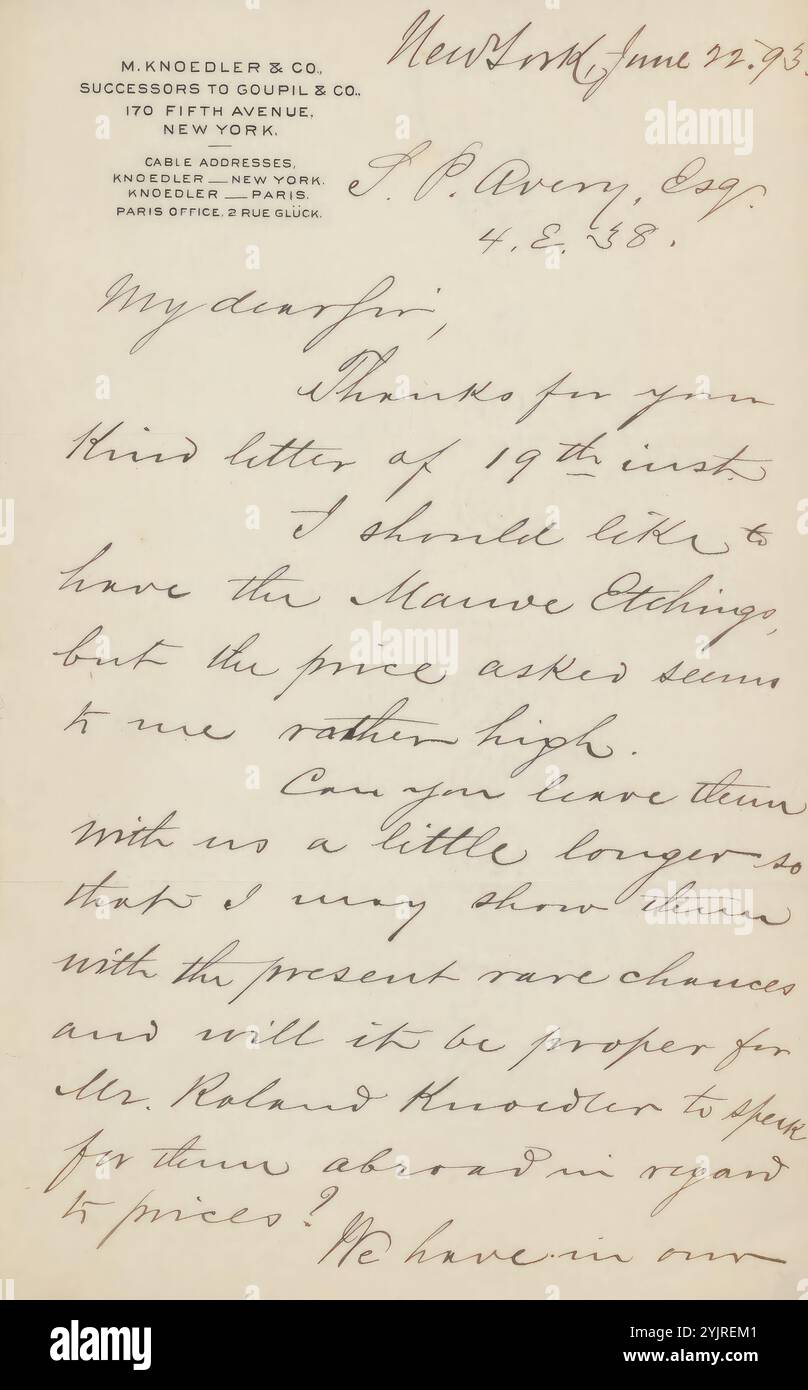 New York, June 22. 93.
M. KNOEDLER & CO.,
SUCCESSORS TO GOUPIL & CO.,
170 FIFTH AVENUE,
NEW YORK.
CABLE ADDRESSES,
KNOEDLER — NEW YORK.
KNOEDLER — PARIS.
PARIS OFFICE, 2 RUE GLÜCK.
S. P. Avery, Esq.
4. E. 38.
My dear Sir,
Thanks for your
Kind letter of 19th inst.
I should like to
have the Mauve Etchings,
but the price asked seems
to me rather high.
Can you leave them
with us a little longer so
that I may show them
with the present rare chances
and will it be proper for
Mr. Roland Knoedler to speak
for them abroad in regard
to prices?
We have in our
alamy
Image ID: 2YJREM1
www.alamy.com